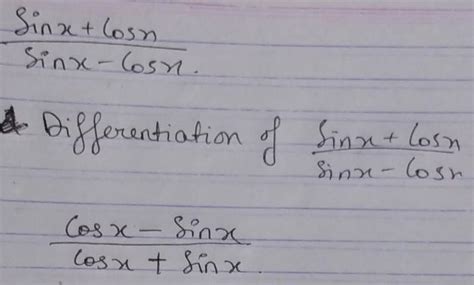 Sinx + Cosx
Sinx - Cosx.
Differentiation of Sinx + Cosx
Sinx - Cosx
Cosx - Sinx
Cosx + Sinx.